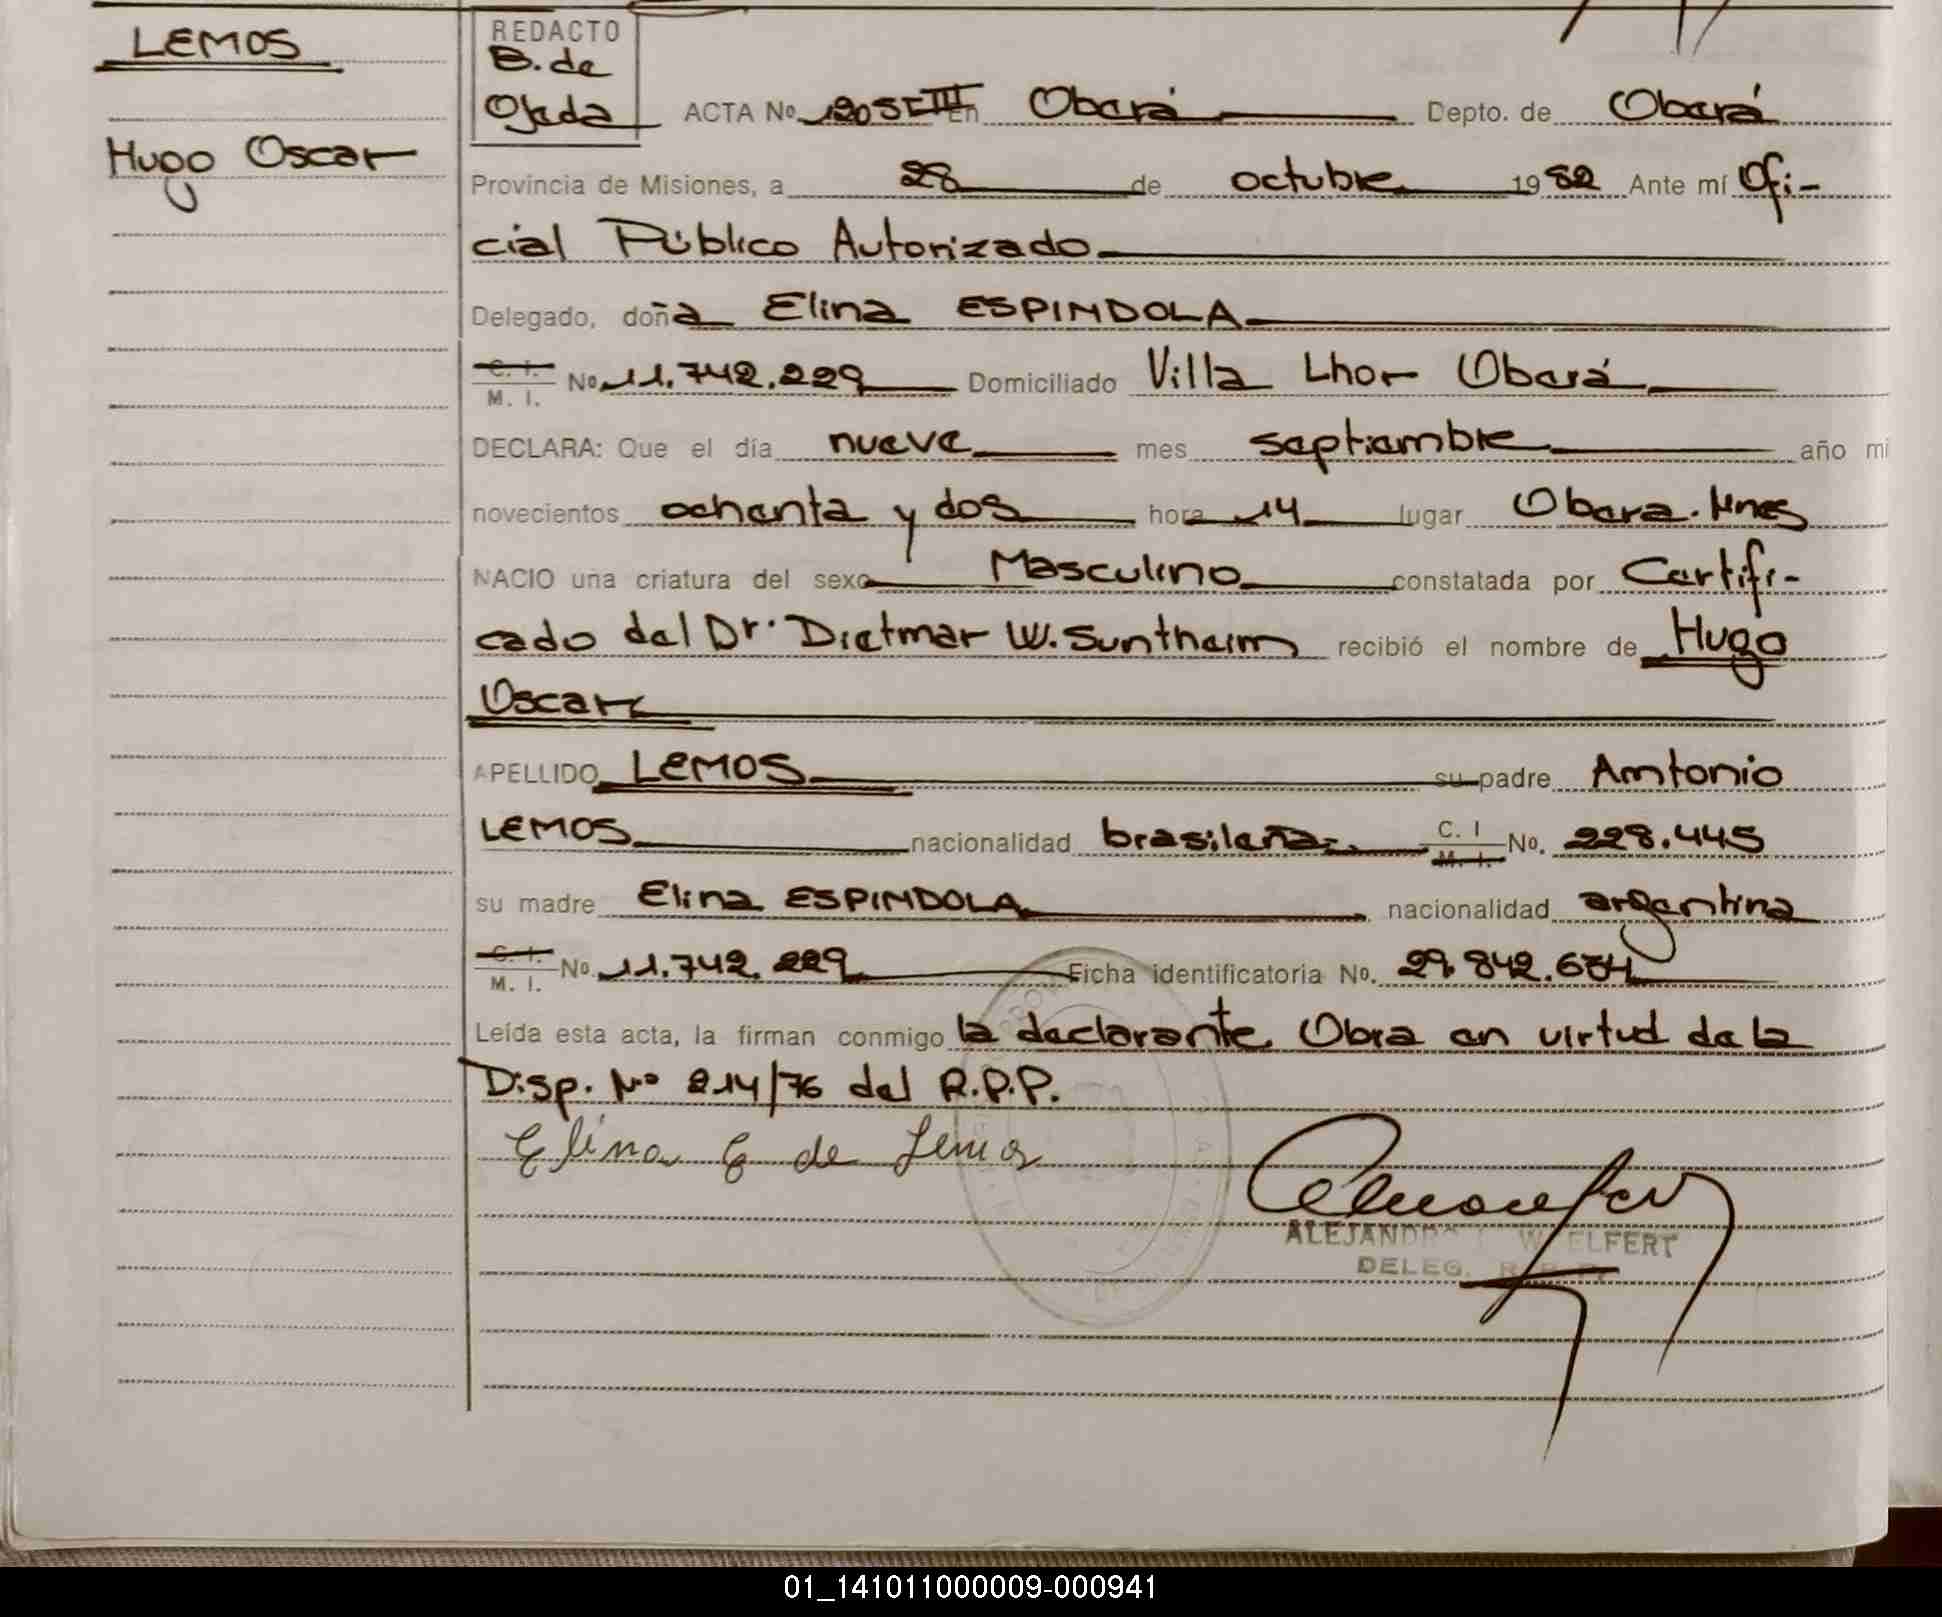 LEMOS
Hugo Oscar
REDACTO
B. de
Ojeda
ACTA No 1205 T III En Oberá Depto. de Oberá
Provincia de Misiones, a 28 de octubre 1982 Ante mí Ofi-
cial Público Autorizado
Delegado, doña Elina ESPINDOLA
C. I.
M. I. No 11.742.229 Domiciliado Villa Lhor Oberá
DECLARA: Que el día nueve mes septiembre año mi
novecientos ochenta y dos hora 14 lugar Obera. Mnes
NACIO una criatura del sexo Masculino constatada por Certifi-
cado del Dr. Dietmar W. Suntheim recibió el nombre de Hugo
Oscar
APELLIDO LEMOS su padre Amtonio
LEMOS nacionalidad brasileña C. I
M. I. No. 228.445
su madre Elina ESPINDOLA nacionalidad argentina
C. I.
M. I. No. 11.742.229 Ficha identificatoria No. 29.842.
Leída esta acta, la firman conmigo la declarante. Obra en virtud de la
Disp. Nº 214/76 del R.P.P.
Elina E de Lemos
ALEJANDRO W ELFERT
DELEG. R. P. P.
01_141011000009-000941